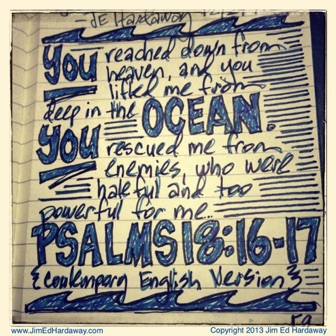 JE Hardaway
YOU reached down from
heaven, and you
lifted me from
deep in the OCEAN.
YOU rescued me from
enemies, who were
hateful and too
powerful for me..
PSALMS 18:16-17
{Contemporary English Version}
www.JimEdHardaway.com Copyright 2013 Jim Ed Hardaway